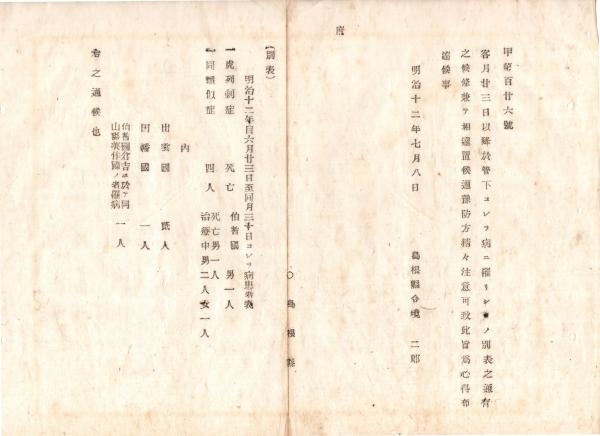 甲第百廿六號
客月廿三日以降於管下コレラ病ニ罹リシモノ別表之通有
之候條兼テ相達置候通豫防方精々注意可致此旨爲心得布
達候事
明治十二年七月八日
島根縣令境二郎
○島根縣
(別表)
明治十二年自六月廿三日至同月三十日コレラ病患者表
一虎列剌症 死亡 伯耆國 男一人
一同類似症 四人 死亡男一人
治療中男二人女一人
内
出雲國 貳人
因幡國 一人
伯耆國倉吉ニ於テ同
山縣美作國ノ者罹病 一人
右之通候也